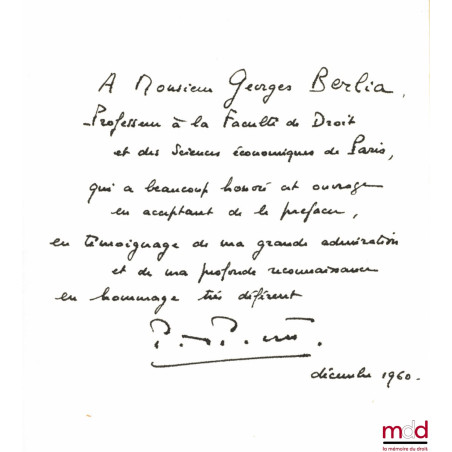 A Monsieur Georges Berlia,
Professeur à la Faculté de Droit
et des Sciences économiques de Paris,
qui a beaucoup honoré cet ouvrage
en acceptant de le préfacer,
en témoignage de ma grande admiration
et de ma profonde reconnaissance
en hommage très déférent
décembre 1960.
mdd
la mémoire du droit